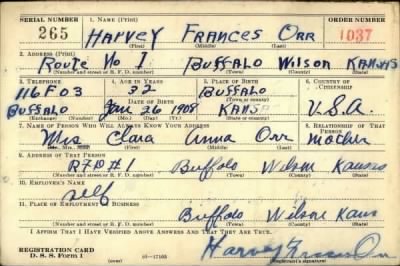 SERIAL NUMBER 1. NAME (Print) ORDER NUMBER
265 HARVEY FRANCES ORR 1037
(First) (Middle) (Last)
2. ADDRESS (Print)
ROUTE No 1 BUFFALO WILSON KANSAS
(Number and street or R. F. D. number) (Town) (County) (State)
3. TELEPHONE 4. AGE IN YEARS 5. PLACE OF BIRTH 6. COUNTRY OF CITIZENSHIP
116F03 32 BUFFALO
DATE OF BIRTH (Town or county)
BUFFALO Jan 26 1908 KANSA U.S.A.
(Exchange) (Number) (Mo.) (Day) (Yr.) (State or country)
7. NAME OF PERSON WHO WILL ALWAYS KNOW YOUR ADDRESS 8. RELATIONSHIP OF THAT PERSON
Mrs Clara Anna Orr Mother
(Mr., Mrs., Miss) (First) (Middle) (Last)
9. ADDRESS OF THAT PERSON
RFD #1 Buffalo Wilson Kansas
(Number and street or R. F. D. number) (Town) (County) (State)
10. EMPLOYER'S NAME
self
11. PLACE OF EMPLOYMENT OR BUSINESS
Buffalo Wilson Kans
(Number and street or R. F. D. number) (Town) (County) (State)
I AFFIRM THAT I HAVE VERIFIED ABOVE ANSWERS AND THAT THEY ARE TRUE.
REGISTRATION CARD
D. S. S. Form 1 Harvey Frances Orr
(Registrant's signature)